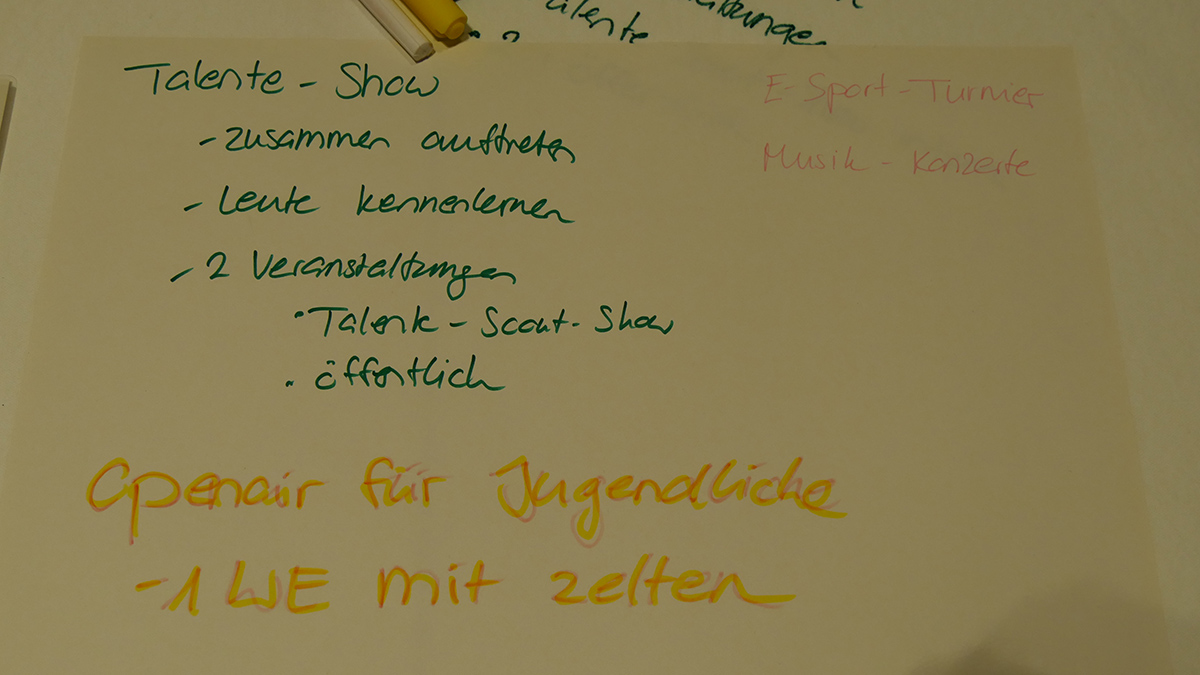 Talente - Show
- zusammen auftreten
- Leute kennenlernen
- 2 Veranstaltungen
• Talente - Scout - Show
• öffentlich
E-Sport-Turnier
Musik - Konzerte
Openair für Jugendliche
- 1 WE mit zelten